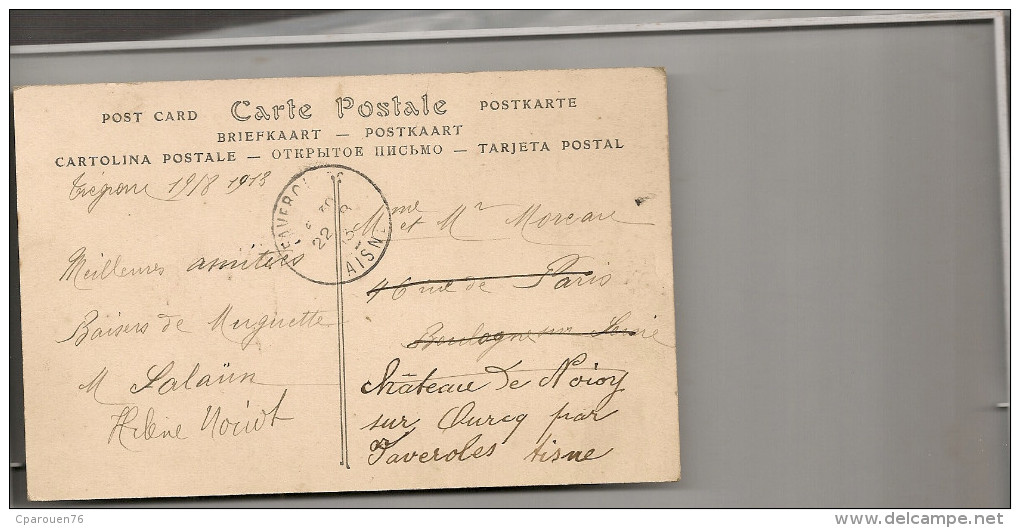 POST CARD Carte Postale POSTKARTE
BRIEFKAART — POSTKAART
CARTOLINA POSTALE — ОТКРЫТОЕ ПИСЬМО — TARJETA POSTAL
19/8 1913
Meilleures amitiés
Baisers de Muguette
M Salaün
Hélène
22 8
AISNE
Mme et Mr Moreau
46 rue de Paris
Boulogne sur Seine
Château de Noroy
sur Ourcq par
Faveroles Aisne
Cparouen76
delcampe.net